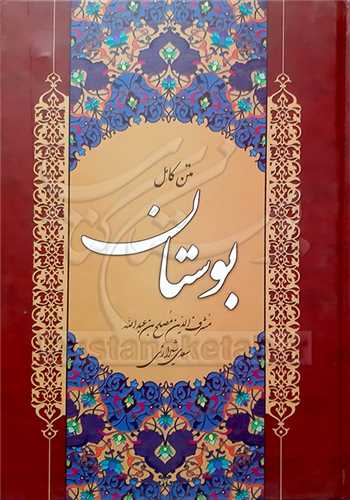 متن کامل
بوستان
مشرف الدین مصلح بن عبدالله
سعدی شیرازی